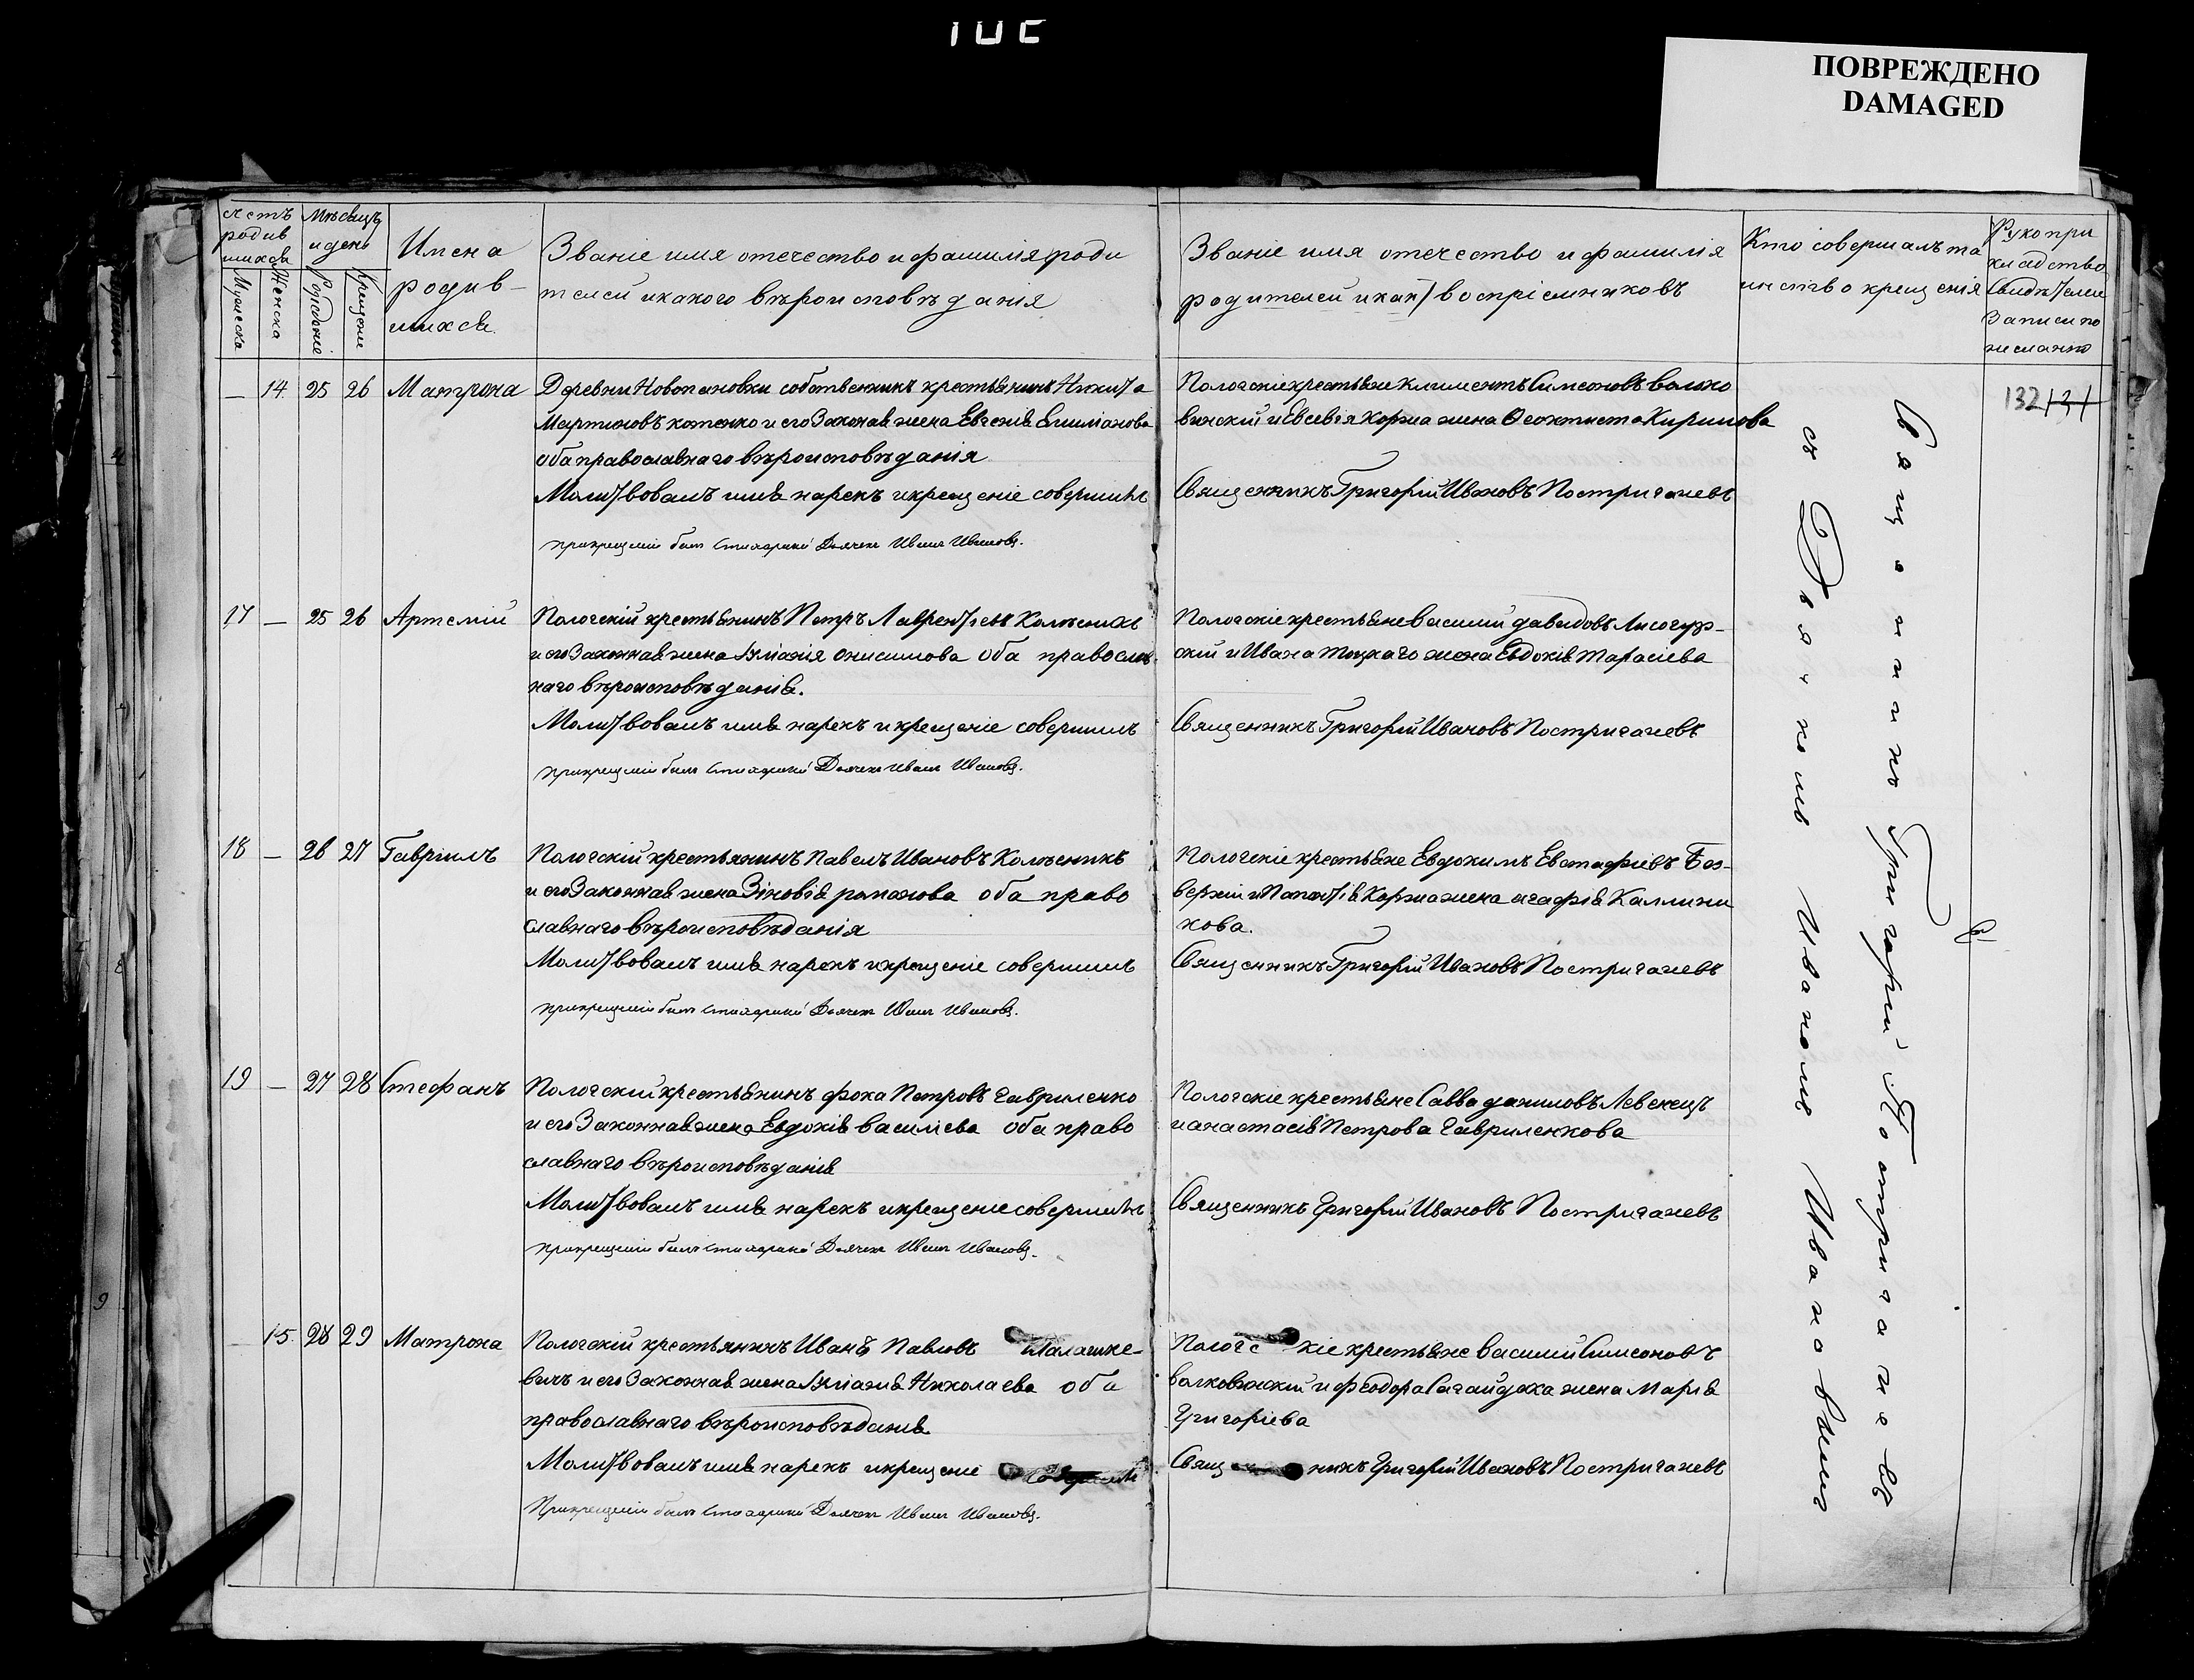 ПОВРЕЖДЕНО
DAMAGED
Имена
родив-
шихся
Званіе имя отечество и фамилія роди
телей и какого вѣроисповѣданія
Званіе имя отечество и фамилія
родителей воспріемниковъ
Кто совершалъ та
инство крещенія
Рукопри
кладство
Записи по
желанію
Мѣсяцъ
и день
— 14. 25 26 Матрона
Деревни Новопановки собственникъ крестьянинъ Никита
Мартиновъ котенко и его Законная жена Евгенія Епиміанова
оба православнаго вѣроисповѣданія
Молитвовалъ имя нарекъ и крещеніе совершилъ
прикрещеніи былъ Стихарный Дьячекъ Иванъ Ивановъ.
Пологскіе крестьяне Климентъ Симеоновъ волко
винскій и Евсевія Коржа жена Ѳеоктиста Кирилова
Священникъ Григорій Ивановъ Постригачевъ
132 131
17 — 25 26 Артемій
Пологскій крестьянинъ Петръ Лаврентіевъ Колѣсникъ
и его Законная жена Іуліанія Онисимова оба православ-
наго вѣроисповѣданія.
Молитвовалъ имя нарекъ и крещеніе совершилъ
прикрещеніи былъ Стихарный Дьячекъ Иванъ Ивановъ.
Пологскіе крестьяне василий давидовъ Лисогур-
скій и Ивана жена Евдокія Тарасіева
Священникъ Григорій Ивановъ Постригачевъ
18 — 26 27 Гавріилъ
Пологскій крестьянинъ Павелъ Ивановъ Колѣсникъ
и его Законная жена Зіновія романова оба право
славнаго вѣроисповѣданія
Молитвовалъ имя нарекъ и крещеніе совершилъ
прикрещеніи былъ Стихарный Дьячекъ Иванъ Ивановъ.
Пологскіе крестьяне Евдокимъ Евстафіевъ Без-
верхій и Коржа жена агафія Каллини
кова.
Священникъ Григорій Ивановъ Постригачевъ
19 — 27 28 Стефанъ
Пологскій крестьянинъ фока Петровъ Гавриленко
и его Законная жена Евдокія василіева оба право
славнаго вѣроисповѣданія
Молитвовалъ имя нарекъ и крещеніе совершилъ
прикрещеніи былъ Стихарный Дьячекъ Иванъ Ивановъ.
Пологскіе крестьяне Савва даниловъ Левенецъ
и анастасія Петрова Гавриленкова
Священникъ Григорій Ивановъ Постригачевъ
— 15. 28 29 Матрона
Пологскій крестьянинъ Иванъ Павловъ Малашке-
вичъ и его Законная жена Іуліанія Николаева оба
православнаго вѣроисповѣданія
Молитвовалъ имя нарекъ и крещеніе совершилъ
Прикрещеніи былъ Стихарный Дьячекъ Иванъ Ивановъ.
Пологскіе крестьяне василий Симеоновъ
волковинскій и феодора Сагайдака жена Марія
Григоріева
Священникъ Григорій Ивановъ Постригачевъ
Священникъ Григорій Постригачевъ
съ Дьячкомъ Иваномъ Ивановимъ